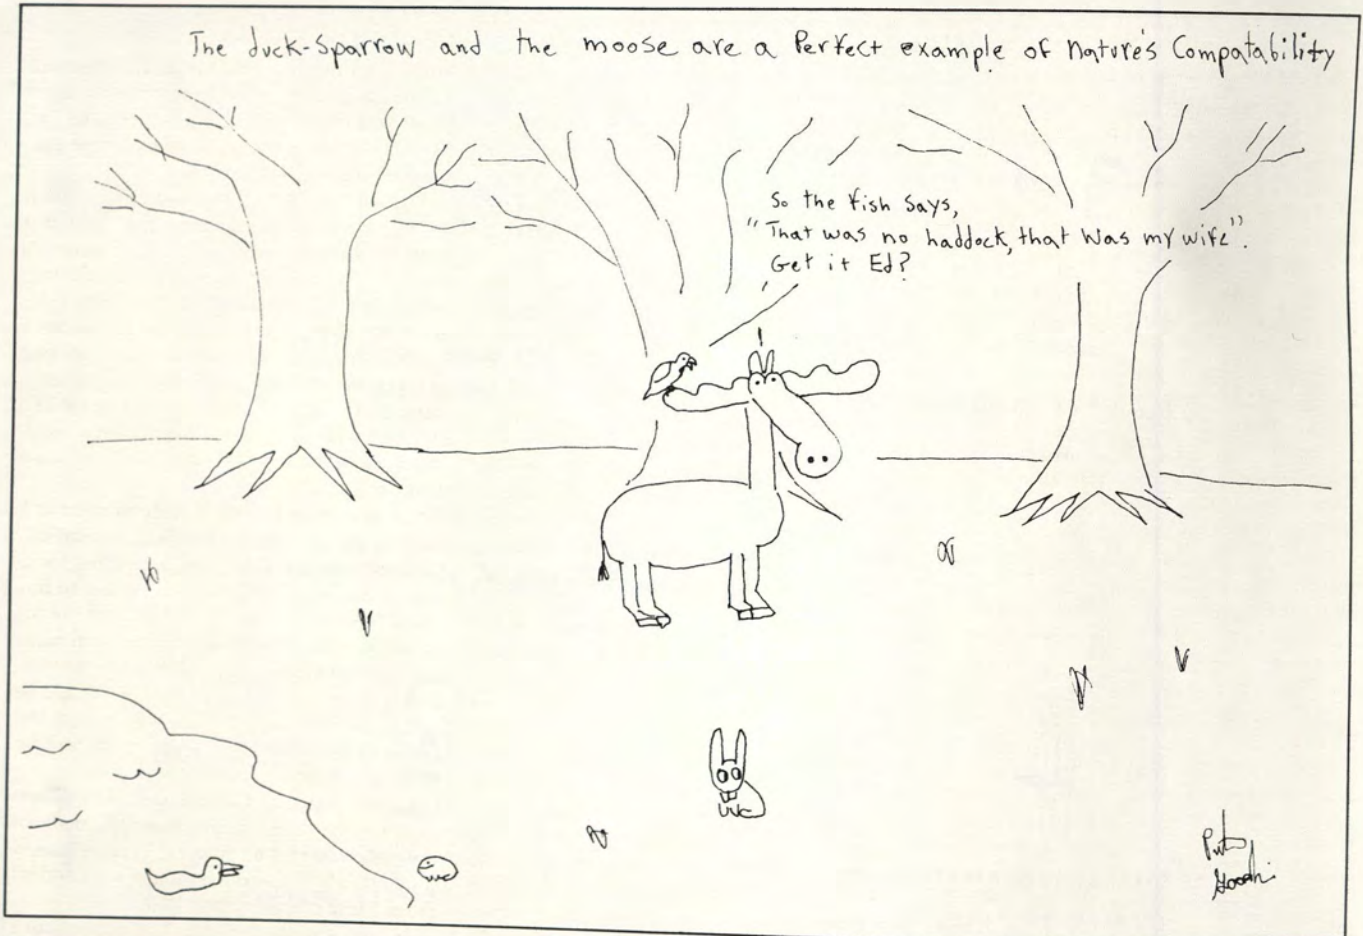 The duck-Sparrow and the moose are a Perfect example of Nature's Compatability
So the fish Says,
"That was no haddock, that Was my wife".
Get it Ed?